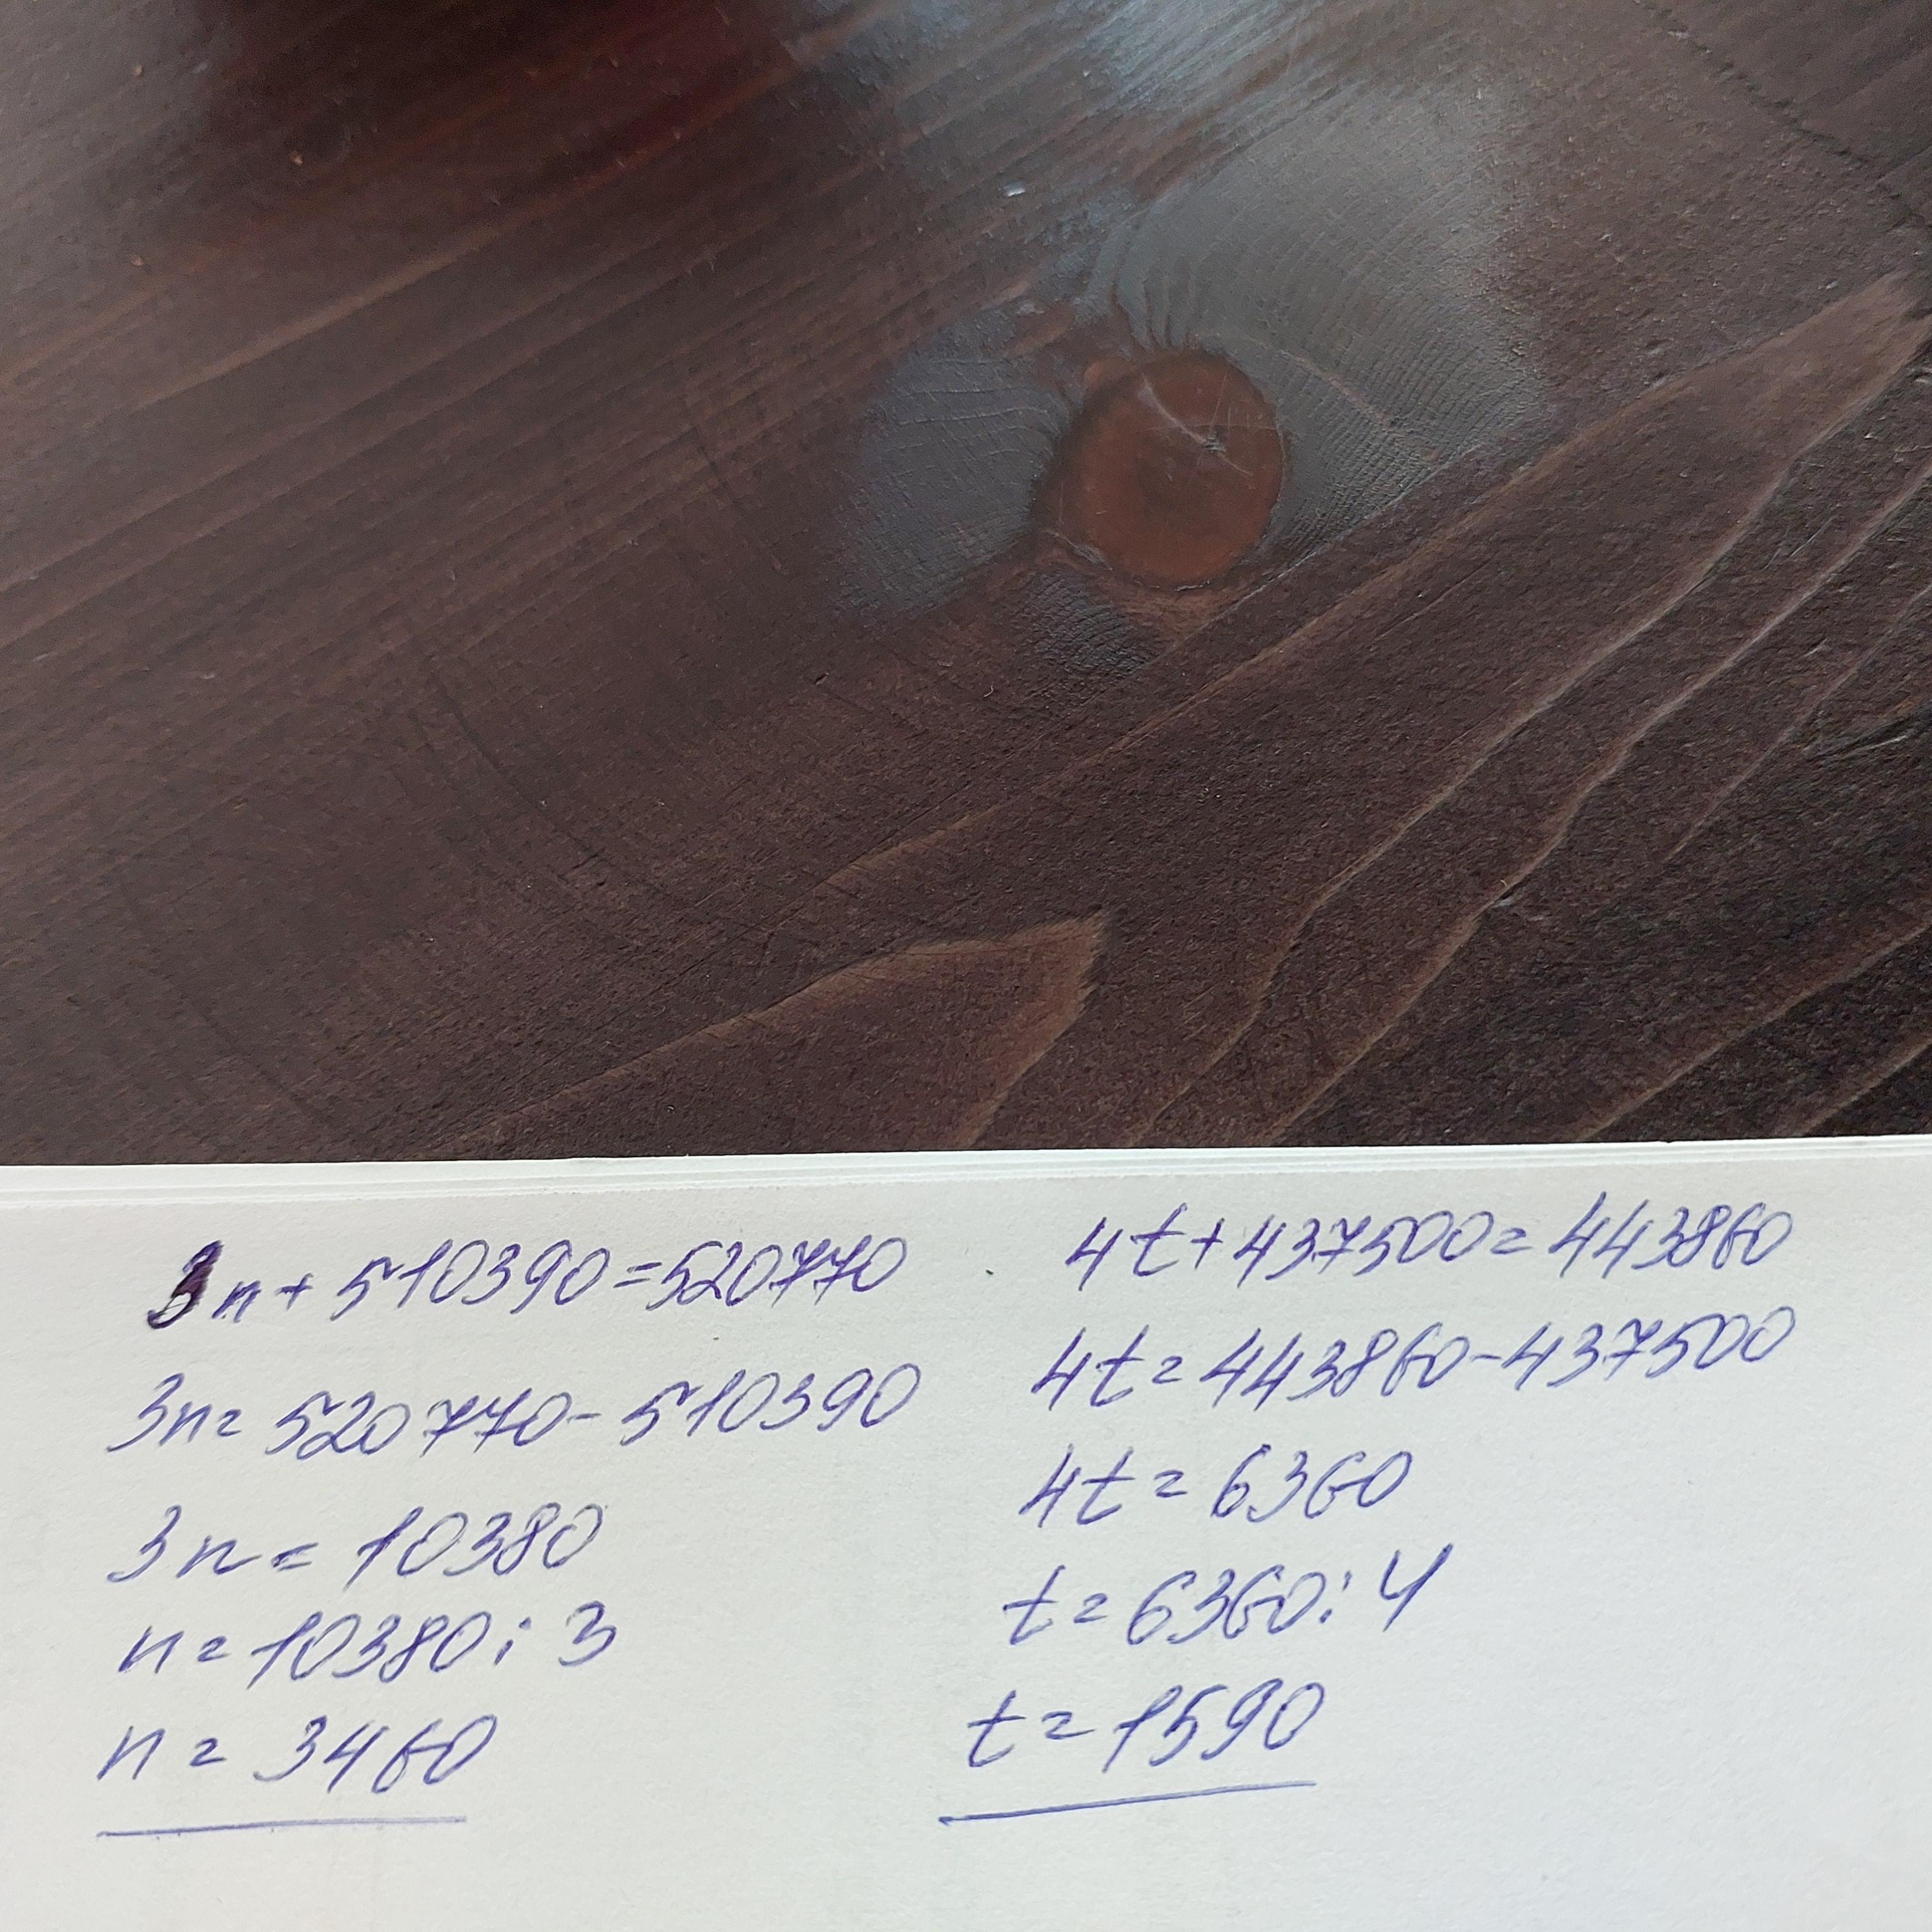 3n+510390=520770
3n=520770-510390
3n=10380
n=10380:3
n=3460
4t+437500=443860
4t=443860-437500
4t=6360
t=6360:4
t=1590